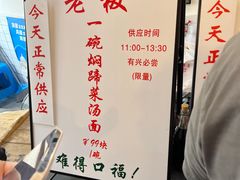 老板
今天正常供应
一碗焖蹄菜汤面
￥99块
1碗
供应时间
11:00-13:30
有兴必尝
(限量)
难得口福!